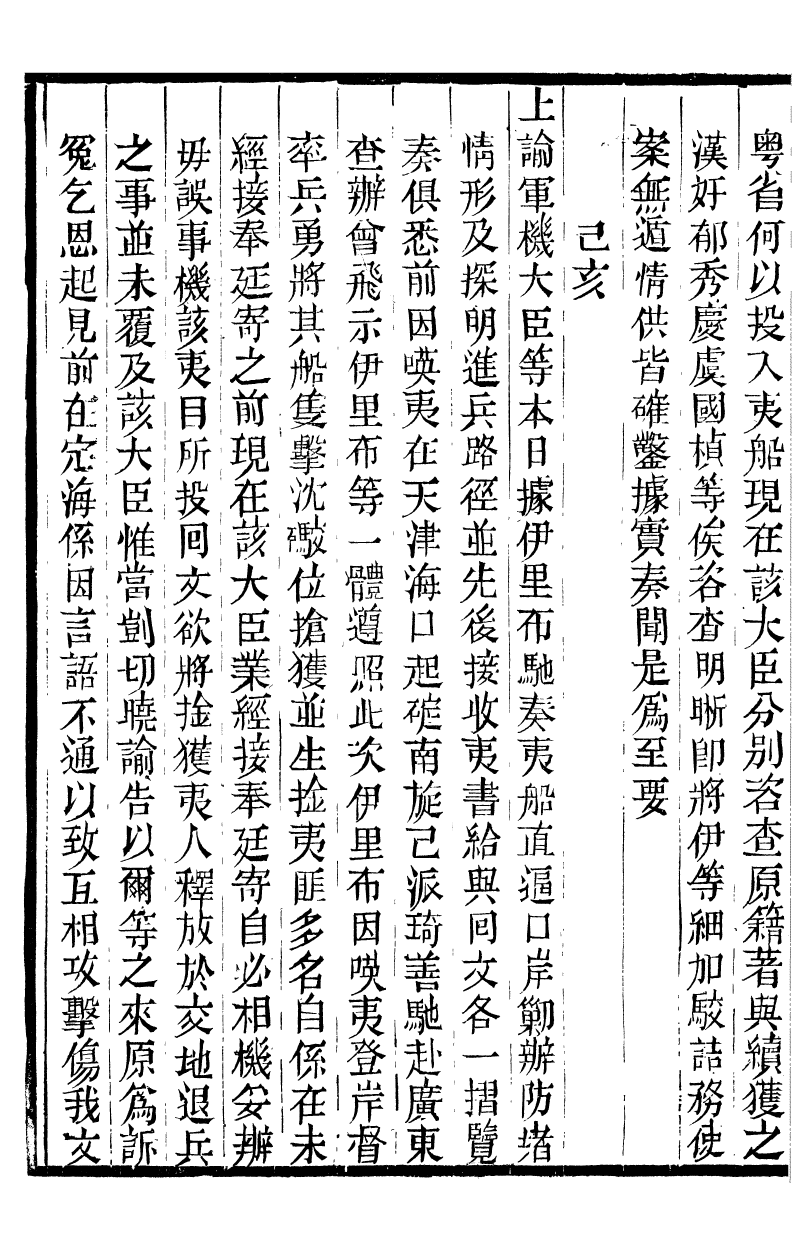 粤省何以投入夷船現在該大臣分別咨查原籍著與續獲之
漢奸郁秀慶虞國楨等俟咨查明晰卽將伊等細加駮詰務使
案無遁情供皆確鑿據實奏聞是爲至要
己亥
上諭軍機大臣等本日據伊里布馳奏夷船直逼口岸勦辦防堵
情形及探明進兵路徑並先後接收夷書給與回文各一摺覽
奏俱悉前因𠸄夷在天津海口起碇南旋已派琦善馳赴廣東
查辦曾飛示伊里布等一體遵照此次伊里布因𠸄夷登岸督
率兵勇將其船隻擊沈礮位搶獲並生捡夷匪多名自係在未
經接奉廷寄之前現在該大臣業經接奉廷寄自必相機妥辦
毋誤事機該夷目所投回文欲將捡獲夷人釋放於交地退兵
之事並未覆及該大臣惟當剴切曉諭告以爾等之來原爲訴
冤乞恩起見前在定海係因言語不通以致互相攻擊傷我文